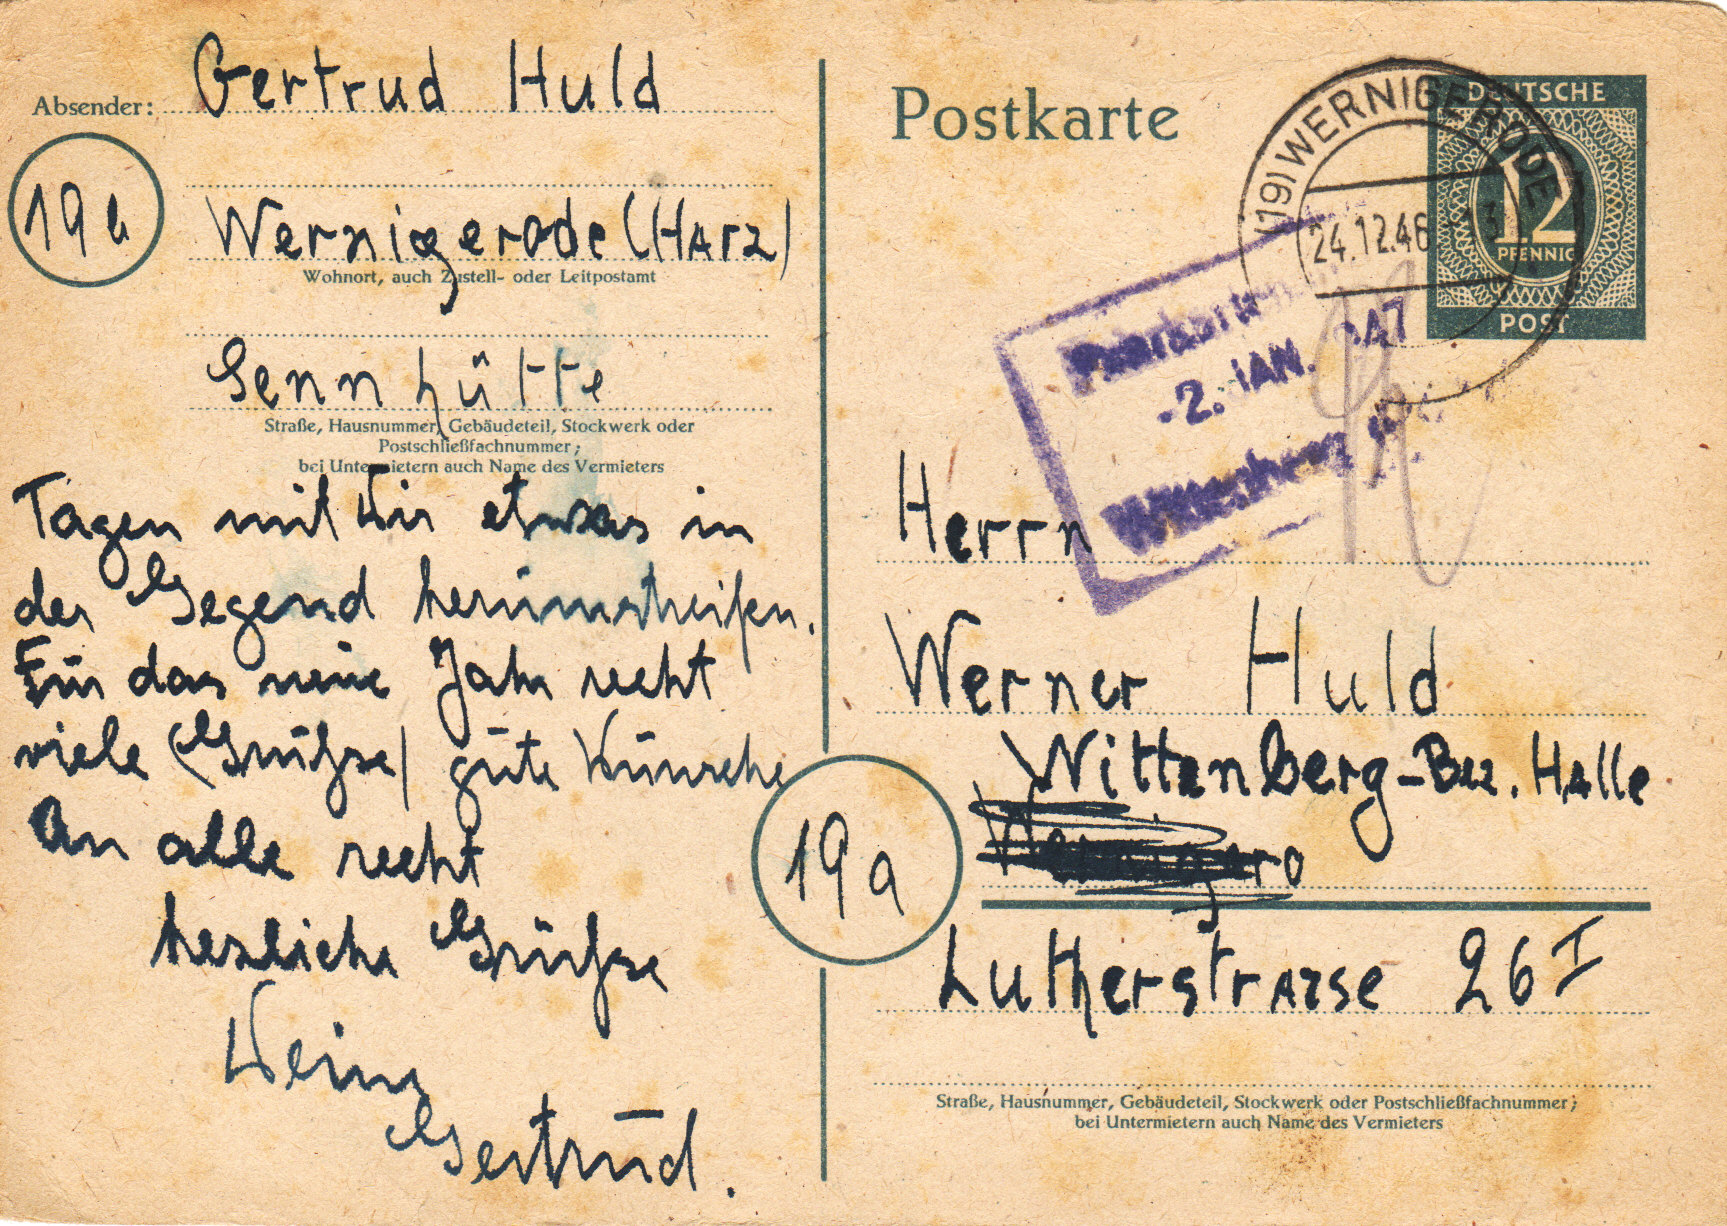 Absender: Gertrud Huld
19a
Wernigerode (Harz)
Wohnort, auch Zustell- oder Leitpostamt
Sennhütte
Straße, Hausnummer, Gebäudeteil, Stockwerk oder
Postschließfachnummer;
bei Untermietern auch Name des Vermieters
Tagen mit Dir etwas in
der Gegend herumstreifen.
Für das neue Jahr recht
viele (Grüsse) gute Wünsche
An alle recht
herzliche Grüsse
Deine
Gertrud.
Postkarte
(19) WERNIGERODE
24.12.46
DEUTSCHE
12
PFENNIG
POST
-2. JAN. 47
Wittenberg
Herrn
Werner Huld
Wittenberg-Bez. Halle
19a
Lutherstrasse 26 I
Straße, Hausnummer, Gebäudeteil, Stockwerk oder Postschließfachnummer;
bei Untermietern auch Name des Vermieters